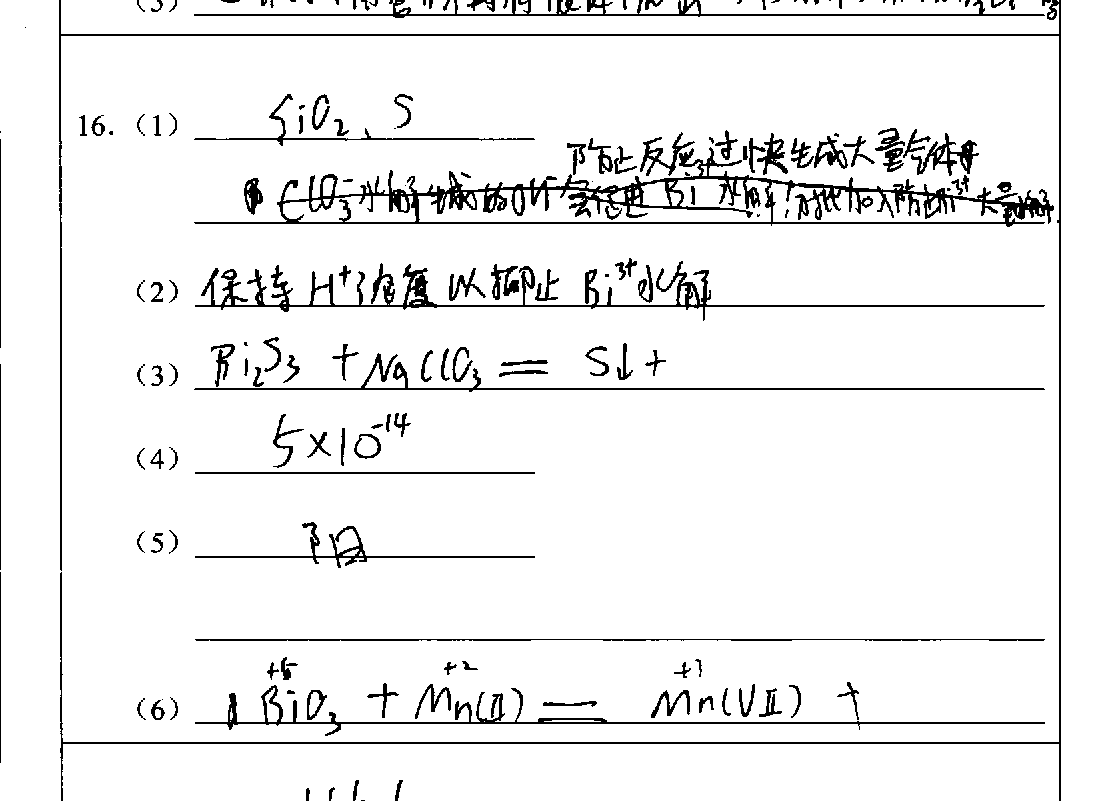 (3)
16. (1) SiO₂、S
防止反应过快生成大量气体
ClO₃⁻水解生成的OH⁻会促进Bi³⁺水解
(2) 保持H⁺浓度以抑止Bi³⁺水解
(3) Bi₂S₃ + NaClO₃ == S↓ +
(4) 5×10⁻¹⁴
(5) 阳
+5 +2 +7
(6) BiO₃ + Mn(II) == Mn(VII) +